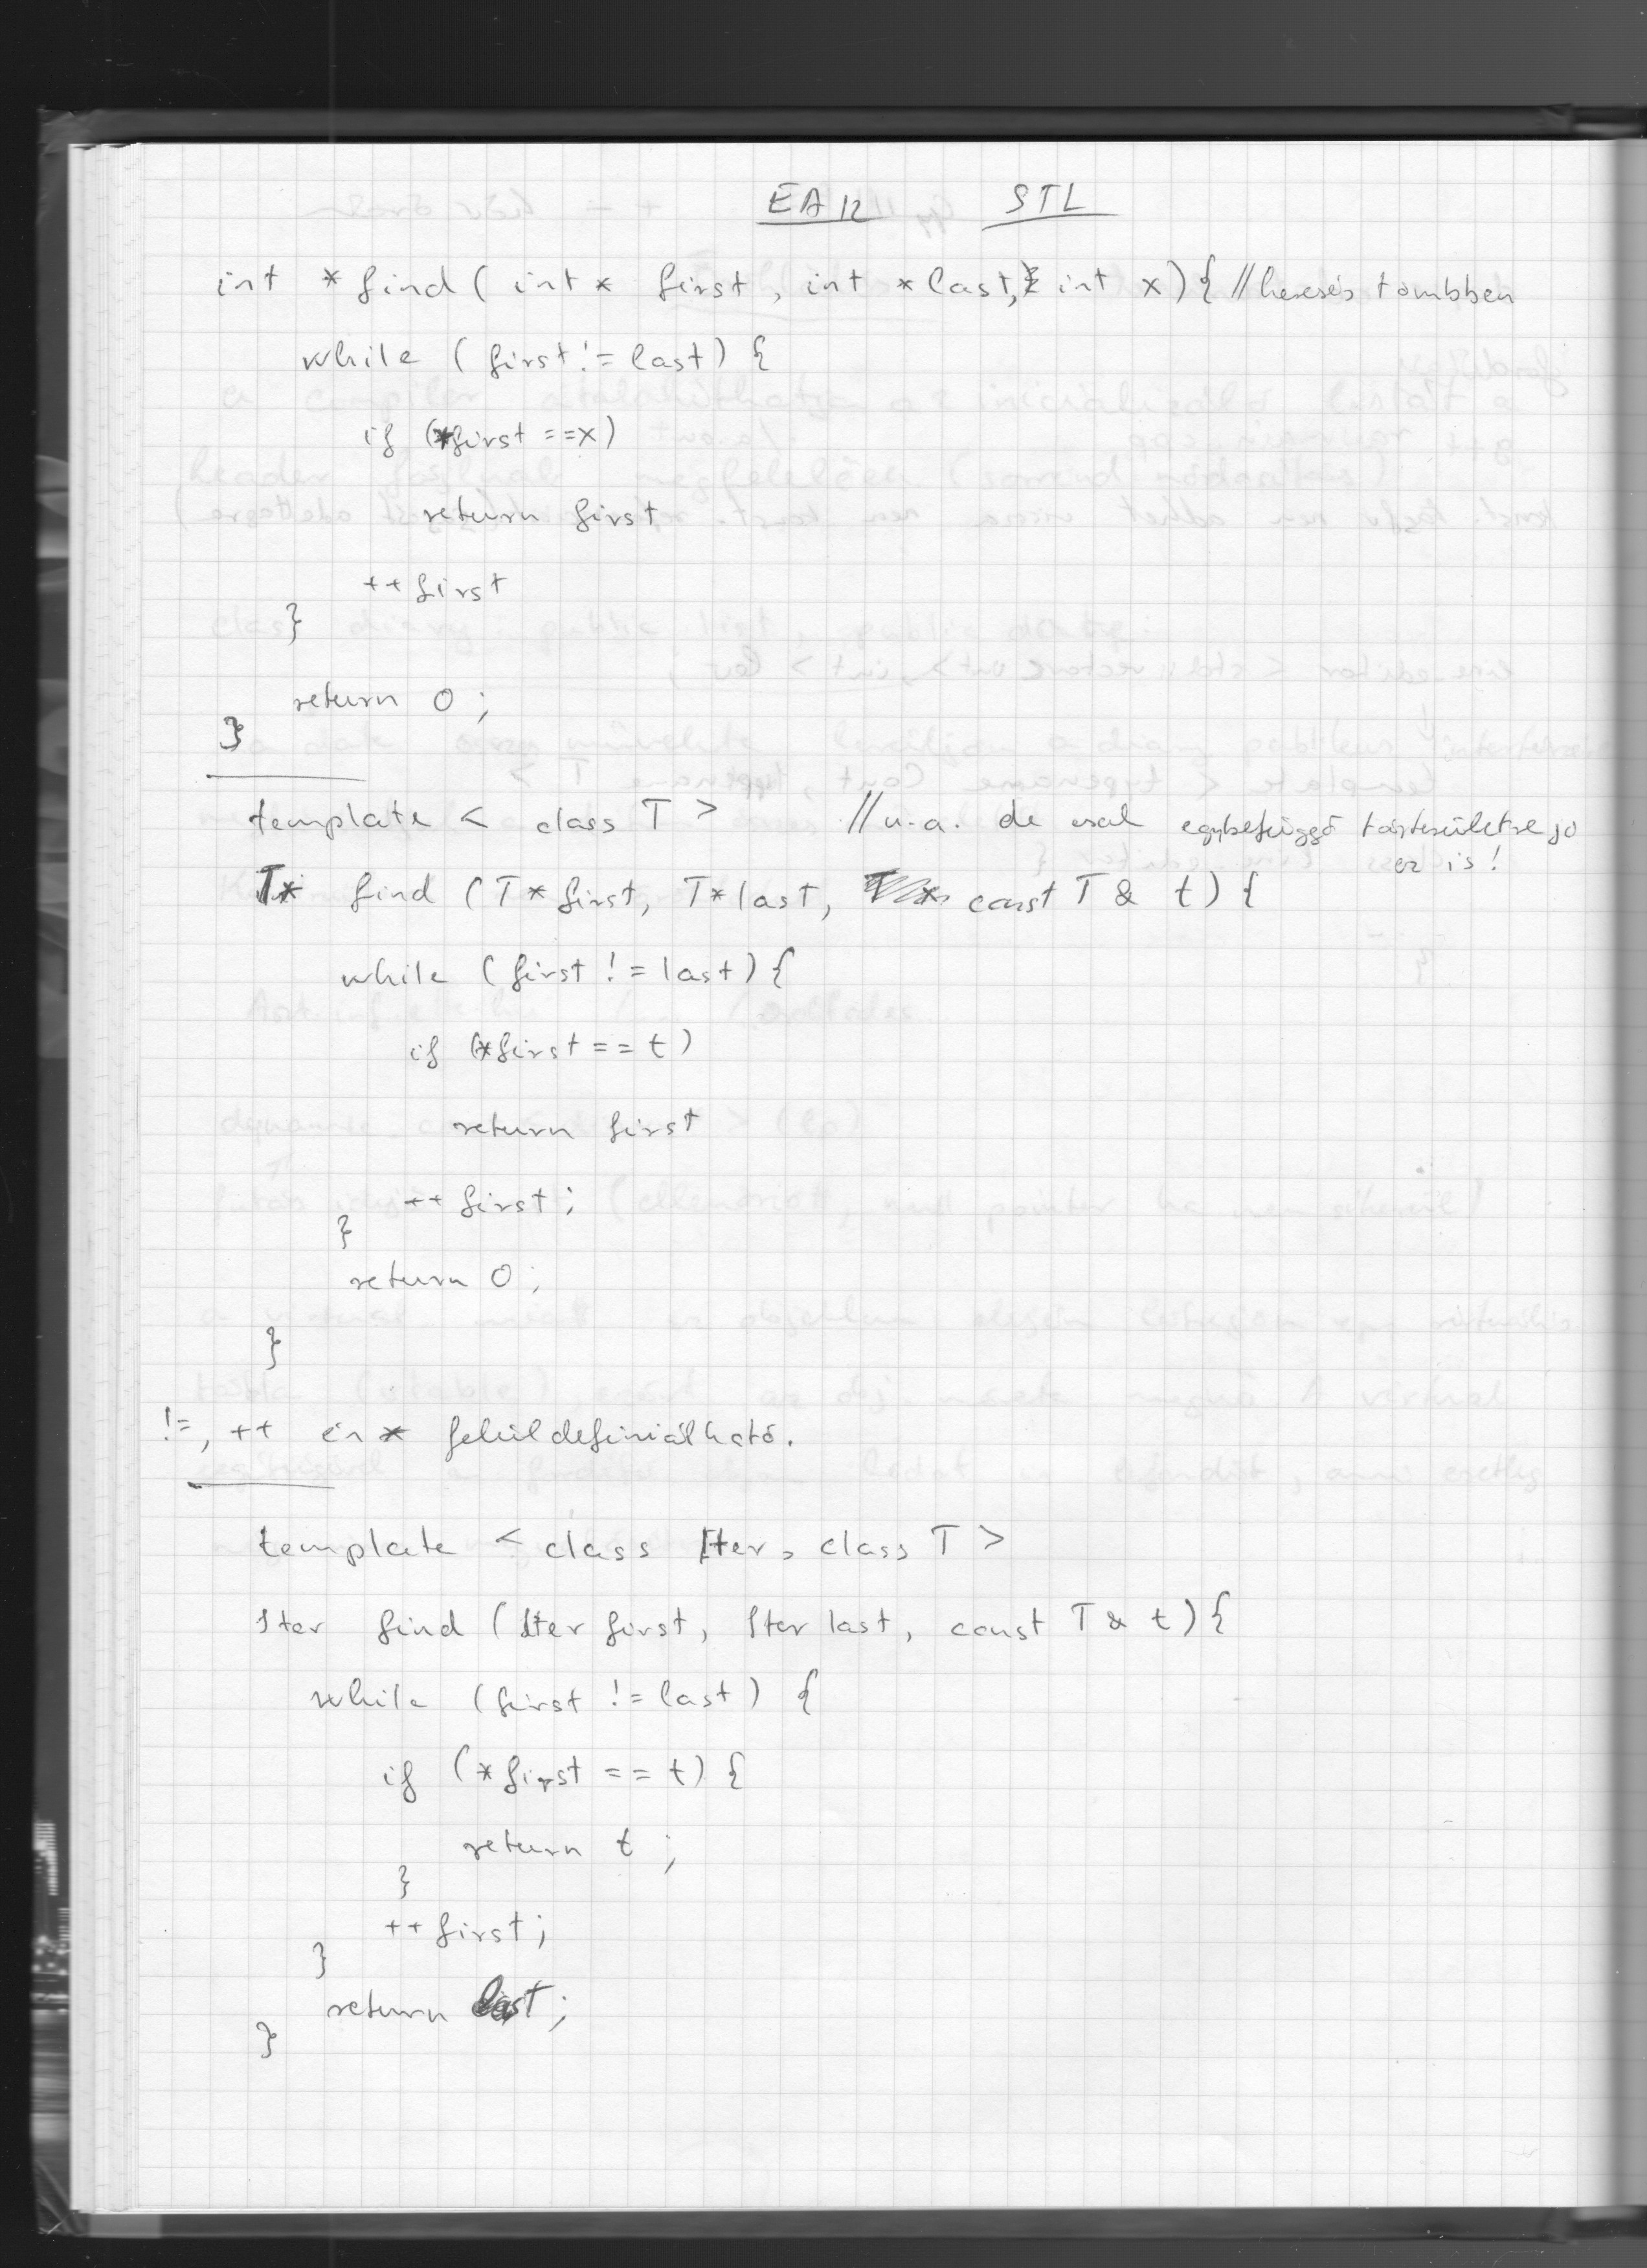 EA 12 STL
int *find ( int * first , int *last, int x) { // keresés tömbben
while ( first != last) {
if (*first ==x)
return first
++first
}
return 0 ;
}
template < class T > // u.a. de csak egybefüggő tárterületre jó
ez is !
T* find ( T * first, T* last, const T & t) {
while ( first != last) {
if (*first == t )
return first
++first ;
}
return 0 ;
}
!=, ++ és * felüldefiniálható.
template < class Iter, class T >
Iter find ( Iter first, Iter last , const T & t) {
while ( first != last) {
if ( *first == t) {
return t ;
}
++first ;
}
return last ;
}